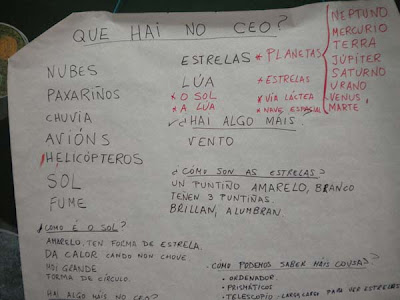 QUE HAI NO CEO?
NUBES
PAXARIÑOS
CHUVIA
AVIÓNS
HELICÓPTEROS
SOL
FUME
ESTRELAS
LÚA
* O SOL
* A LÚA
* PLANETAS
* ESTRELAS
* VÍA LÁCTEA
* NAVE ESPACIAL
NEPTUNO
MERCURIO
TERRA
JÚPITER
SATURNO
URANO
VENUS
MARTE
¿HAI ALGO MÁIS
VENTO
¿CÓMO SON AS ESTRELAS?
UN PUNTIÑO AMARELO, BRANCO
TEÑEN 3 PUNTIÑAS.
BRILLAN, ALUMBRAN.
¿COMO É O SOL?
AMARELO, TEN FORMA DE ESTRELA.
DA CALOR CANDO NON CHOVE.
MOI GRANDE
FORMA DE CÍRCULO.
HAI ALGO MÁIS NO CEO?
¿CÓMO PODEMOS SABER MÁIS COUSAS?
• ORDENADOR
• PRISMÁTICOS
• TELESCOPIO - PARA VER ESTRELAS